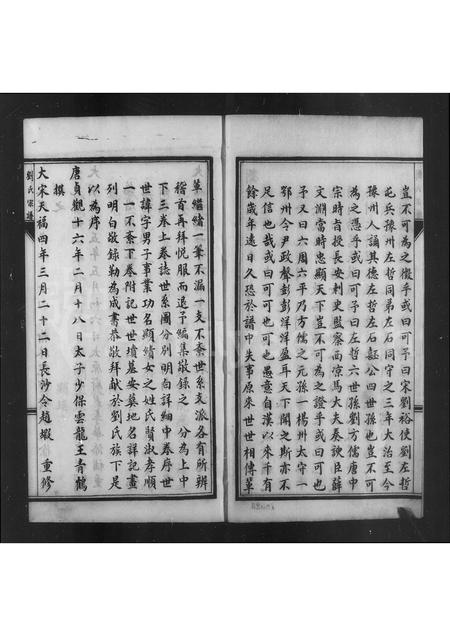 豈不可為之徵乎或曰可予曰宋劉裕使劉左哲
屯兵豫州左哲同弟左石同守之三年大治至今
豫州人謳其德左哲左石懿公四世孫也豈不可
為之憑乎或曰可予曰左哲六世孫劉方儒唐中
宗時首授長安刺史監察西涼馬大夫秦諛臣薛
文淵當時忠顯天下豈不可為之證乎或曰可也
予又曰六周六平乃方儒之元孫一楊州太守一
鄂州令尹政聲彭彭洋洋盈耳天下聞之斯亦不
足信也哉或曰可可也可也愚意自漢以來千有
餘歲年遠日久恐於譜中失事原來世世相傳草
草繼緒一筆不漏一支不紊世系支派各有所辨
稽首再拜悅服而退予編集敬錄之 分為上中
下三卷上卷誌世系圖分別明白詳細中卷序世
世諱字男子事業功名顯婧女之姓氏賢淑孝順
一一不紊下卷附記世世墳墓安墓地名詳記畫
列明白敬錄勒為成書恭敬拜獻於劉氏族下是
以為序
唐貞觀十六年二月十八日太子少保雲龍王青鶴
撰
大宋天福四年三月二十二日長沙令趙嘏 重修
劉氏宗譜